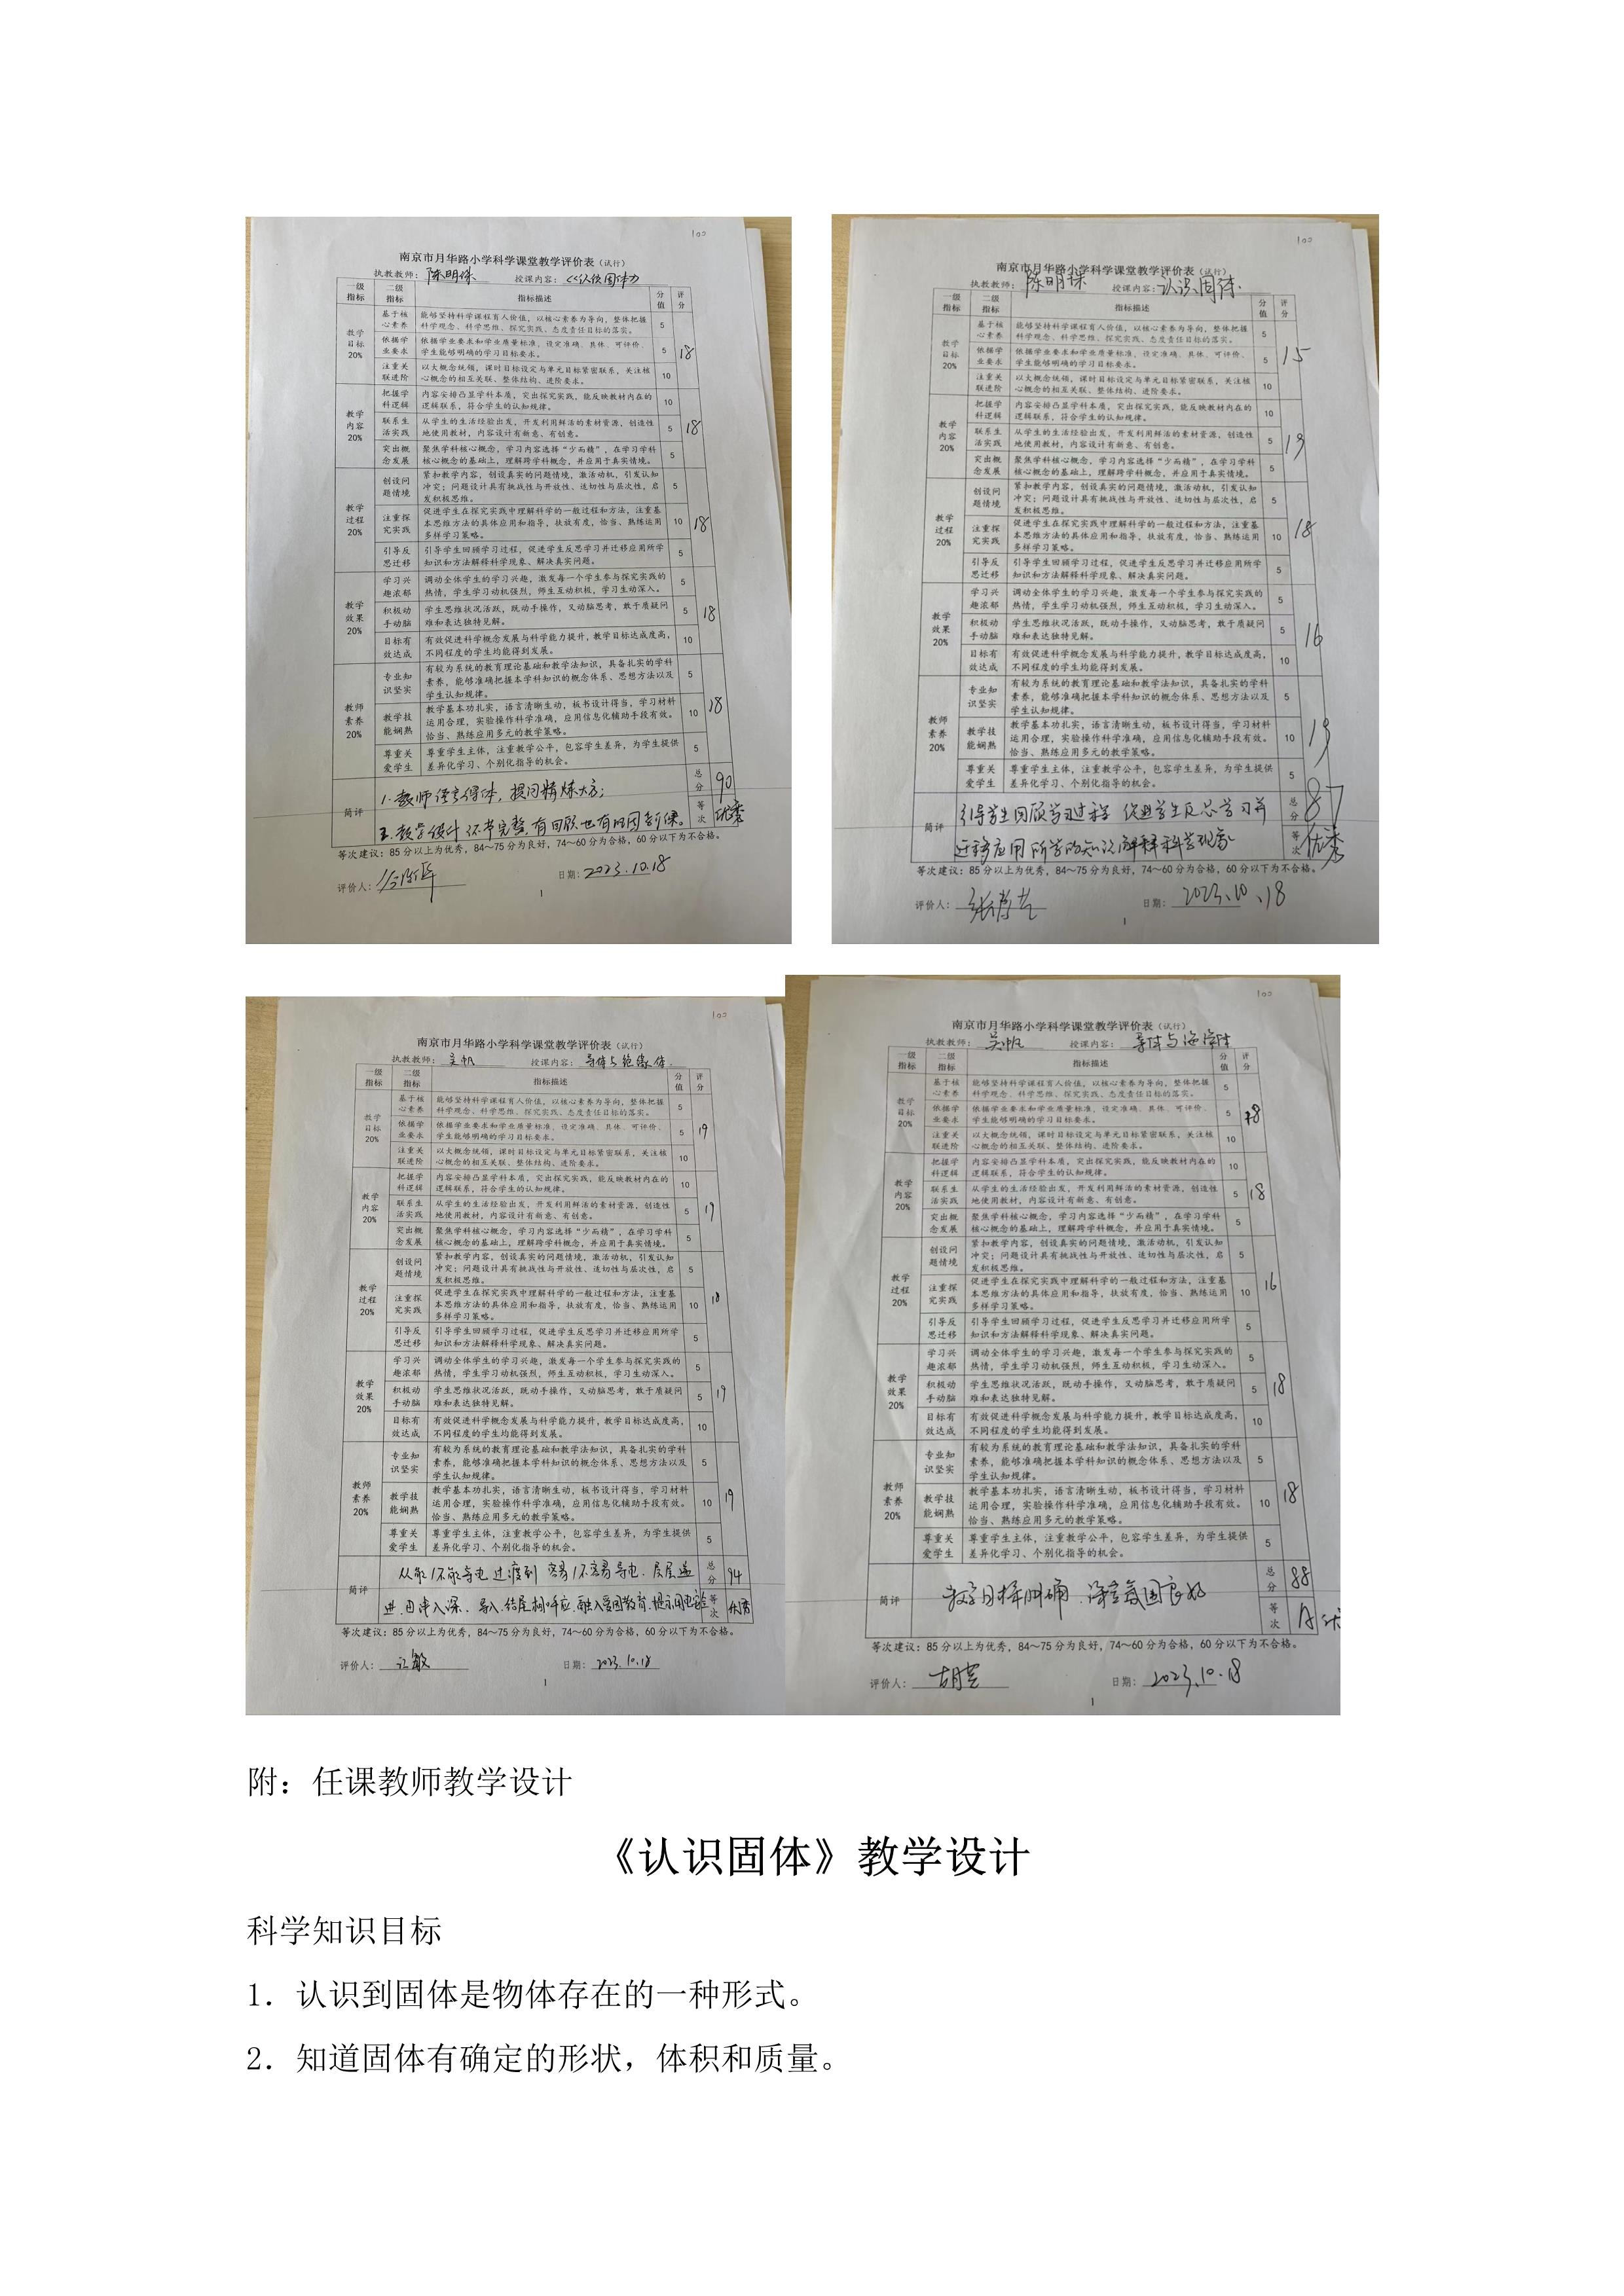 100
南京市月华路小学科学课堂教学评价表（试行）
执教教师：陈明珠 授课内容：《认识固体》
一级指标 二级指标 指标描述 分值 评分
教学目标20%
基于核心素养 能够坚持科学课程育人价值，以核心素养为导向，整体把握科学观念、科学思维、探究实践、态度责任目标的落实。 5
依据学业要求 依据学业要求和学业质量标准，设定准确、具体、可评价、学生能够明确的学习目标要求。 5 18
注重关联进阶 以大概念统领，课时目标设定与单元目标紧密联系，关注核心概念的相互关联、整体结构、进阶要求。 10
教学内容20%
把握学科逻辑 内容安排凸显学科本质，突出探究实践，能反映教材内在的逻辑联系，符合学生的认知规律。 10
联系生活实践 从学生的生活经验出发，开发利用鲜活的素材资源，创造性地使用教材，内容设计有新意、有创意。 5 18
突出概念发展 聚焦学科核心概念，学习内容选择“少而精”，在学习学科核心概念的基础上，理解跨学科概念，并应用于真实情境。 5
教学过程20%
创设问题情境 紧扣教学内容，创设真实的问题情境，激活动机，引发认知冲突；问题设计具有挑战性与开放性、适切性与层次性，启发积极思维。 5
注重探究实践 促进学生在探究实践中理解科学的一般过程和方法，注重基本思维方法的具体应用和指导，扶放有度，恰当、熟练运用多样学习策略。 10 18
引导反思迁移 引导学生回顾学习过程，促进学生反思学习并迁移应用所学知识和方法解释科学现象、解决真实问题。 5
教学效果20%
学习兴趣浓郁 调动全体学生的学习兴趣，激发每一个学生参与探究实践的热情，学生学习动机强烈，师生互动积极，学习生动深入。 5
积极动手动脑 学生思维状况活跃，既动手操作，又动脑思考，敢于质疑问难和表达独特见解。 5 18
目标有效达成 有效促进科学概念发展与科学能力提升，教学目标达成度高，不同程度的学生均能得到发展。 10
教师素养20%
专业知识坚实 有较为系统的教育理论基础和教学法知识，具备扎实的学科素养，能够准确把握本学科知识的概念体系、思想方法以及学生认知规律。 5
教学技能娴熟 教学基本功扎实，语言清晰生动，板书设计得当，学习材料运用合理，实验操作科学准确，应用信息化辅助手段有效。恰当、熟练应用多元的教学策略。 10 18
尊重关爱学生 尊重学生主体，注重教学公平，包容学生差异，为学生提供差异化学习、个别化指导的机会。 5
简评 1.教师语言得体，提问精炼大方； 总分 90
2.教学设计环节完整，有回顾也有巩固新课。 等次 优秀
等次建议：85分以上为优秀，84～75分为良好，74～60分为合格，60分以下为不合格。
评价人： 日期：2023.10.18
1
100
南京市月华路小学科学课堂教学评价表（试行）
执教教师：陈明珠 授课内容：认识固体.
一级指标 二级指标 指标描述 分值 评分
教学目标20%
基于核心素养 能够坚持科学课程育人价值，以核心素养为导向，整体把握科学观念、科学思维、探究实践、态度责任目标的落实。 5
依据学业要求 依据学业要求和学业质量标准，设定准确、具体、可评价、学生能够明确的学习目标要求。 5 15
注重关联进阶 以大概念统领，课时目标设定与单元目标紧密联系，关注核心概念的相互关联、整体结构、进阶要求。 10
教学内容20%
把握学科逻辑 内容安排凸显学科本质，突出探究实践，能反映教材内在的逻辑联系，符合学生的认知规律。 10
联系生活实践 从学生的生活经验出发，开发利用鲜活的素材资源，创造性地使用教材，内容设计有新意、有创意。 5 19
突出概念发展 聚焦学科核心概念，学习内容选择“少而精”，在学习学科核心概念的基础上，理解跨学科概念，并应用于真实情境。 5
教学过程20%
创设问题情境 紧扣教学内容，创设真实的问题情境，激活动机，引发认知冲突；问题设计具有挑战性与开放性、适切性与层次性，启发积极思维。 5
注重探究实践 促进学生在探究实践中理解科学的一般过程和方法，注重基本思维方法的具体应用和指导，扶放有度，恰当、熟练运用多样学习策略。 10 18
引导反思迁移 引导学生回顾学习过程，促进学生反思学习并迁移应用所学知识和方法解释科学现象、解决真实问题。 5
教学效果20%
学习兴趣浓郁 调动全体学生的学习兴趣，激发每一个学生参与探究实践的热情，学生学习动机强烈，师生互动积极，学习生动深入。 5
积极动手动脑 学生思维状况活跃，既动手操作，又动脑思考，敢于质疑问难和表达独特见解。 5 16
目标有效达成 有效促进科学概念发展与科学能力提升，教学目标达成度高，不同程度的学生均能得到发展。 10
教师素养20%
专业知识坚实 有较为系统的教育理论基础和教学法知识，具备扎实的学科素养，能够准确把握本学科知识的概念体系、思想方法以及学生认知规律。 5
教学技能娴熟 教学基本功扎实，语言清晰生动，板书设计得当，学习材料运用合理，实验操作科学准确，应用信息化辅助手段有效。恰当、熟练应用多元的教学策略。 10 19
尊重关爱学生 尊重学生主体，注重教学公平，包容学生差异，为学生提供差异化学习、个别化指导的机会。 5
简评 引导学生回顾学习过程 促进学生反思学习并 总分 87
迁移应用所学的知识解释科学现象 等次 优秀
等次建议：85分以上为优秀，84～75分为良好，74～60分为合格，60分以下为不合格。
评价人： 日期：2023.10.18
1
100
南京市月华路小学科学课堂教学评价表（试行）
执教教师：吴帆 授课内容：导体与绝缘体.
一级指标 二级指标 指标描述 分值 评分
教学目标20%
基于核心素养 能够坚持科学课程育人价值，以核心素养为导向，整体把握科学观念、科学思维、探究实践、态度责任目标的落实。 5
依据学业要求 依据学业要求和学业质量标准，设定准确、具体、可评价、学生能够明确的学习目标要求。 5 19
注重关联进阶 以大概念统领，课时目标设定与单元目标紧密联系，关注核心概念的相互关联、整体结构、进阶要求。 10
教学内容20%
把握学科逻辑 内容安排凸显学科本质，突出探究实践，能反映教材内在的逻辑联系，符合学生的认知规律。 10
联系生活实践 从学生的生活经验出发，开发利用鲜活的素材资源，创造性地使用教材，内容设计有新意、有创意。 5 19
突出概念发展 聚焦学科核心概念，学习内容选择“少而精”，在学习学科核心概念的基础上，理解跨学科概念，并应用于真实情境。 5
教学过程20%
创设问题情境 紧扣教学内容，创设真实的问题情境，激活动机，引发认知冲突；问题设计具有挑战性与开放性、适切性与层次性，启发积极思维。 5
注重探究实践 促进学生在探究实践中理解科学的一般过程和方法，注重基本思维方法的具体应用和指导，扶放有度，恰当、熟练运用多样学习策略。 10 18
引导反思迁移 引导学生回顾学习过程，促进学生反思学习并迁移应用所学知识和方法解释科学现象、解决真实问题。 5
教学效果20%
学习兴趣浓郁 调动全体学生的学习兴趣，激发每一个学生参与探究实践的热情，学生学习动机强烈，师生互动积极，学习生动深入。 5
积极动手动脑 学生思维状况活跃，既动手操作，又动脑思考，敢于质疑问难和表达独特见解。 5 19
目标有效达成 有效促进科学概念发展与科学能力提升，教学目标达成度高，不同程度的学生均能得到发展。 10
教师素养20%
专业知识坚实 有较为系统的教育理论基础和教学法知识，具备扎实的学科素养，能够准确把握本学科知识的概念体系、思想方法以及学生认知规律。 5
教学技能娴熟 教学基本功扎实，语言清晰生动，板书设计得当，学习材料运用合理，实验操作科学准确，应用信息化辅助手段有效。恰当、熟练应用多元的教学策略。 10 19
尊重关爱学生 尊重学生主体，注重教学公平，包容学生差异，为学生提供差异化学习、个别化指导的机会。 5
简评 从能/不能导电过渡到 容易/不容易导电. 层层递 总分 94
进.由浅入深. 导入、结尾相呼应，融入爱国教育. 等次 优秀
等次建议：85分以上为优秀，84～75分为良好，74～60分为合格，60分以下为不合格。
评价人： 日期：2023.10.18
1
100
南京市月华路小学科学课堂教学评价表（试行）
执教教师：吴帆 授课内容：导体与绝缘体
一级指标 二级指标 指标描述 分值 评分
教学目标20%
基于核心素养 能够坚持科学课程育人价值，以核心素养为导向，整体把握科学观念、科学思维、探究实践、态度责任目标的落实。 5
依据学业要求 依据学业要求和学业质量标准，设定准确、具体、可评价、学生能够明确的学习目标要求。 5 18
注重关联进阶 以大概念统领，课时目标设定与单元目标紧密联系，关注核心概念的相互关联、整体结构、进阶要求。 10
教学内容20%
把握学科逻辑 内容安排凸显学科本质，突出探究实践，能反映教材内在的逻辑联系，符合学生的认知规律。 10
联系生活实践 从学生的生活经验出发，开发利用鲜活的素材资源，创造性地使用教材，内容设计有新意、有创意。 5 18
突出概念发展 聚焦学科核心概念，学习内容选择“少而精”，在学习学科核心概念的基础上，理解跨学科概念，并应用于真实情境。 5
教学过程20%
创设问题情境 紧扣教学内容，创设真实的问题情境，激活动机，引发认知冲突；问题设计具有挑战性与开放性、适切性与层次性，启发积极思维。 5
注重探究实践 促进学生在探究实践中理解科学的一般过程和方法，注重基本思维方法的具体应用和指导，扶放有度，恰当、熟练运用多样学习策略。 10 16
引导反思迁移 引导学生回顾学习过程，促进学生反思学习并迁移应用所学知识和方法解释科学现象、解决真实问题。 5
教学效果20%
学习兴趣浓郁 调动全体学生的学习兴趣，激发每一个学生参与探究实践的热情，学生学习动机强烈，师生互动积极，学习生动深入。 5
积极动手动脑 学生思维状况活跃，既动手操作，又动脑思考，敢于质疑问难和表达独特见解。 5 18
目标有效达成 有效促进科学概念发展与科学能力提升，教学目标达成度高，不同程度的学生均能得到发展。 10
教师素养20%
专业知识坚实 有较为系统的教育理论基础和教学法知识，具备扎实的学科素养，能够准确把握本学科知识的概念体系、思想方法以及学生认知规律。 5
教学技能娴熟 教学基本功扎实，语言清晰生动，板书设计得当，学习材料运用合理，实验操作科学准确，应用信息化辅助手段有效。恰当、熟练应用多元的教学策略。 10 18
尊重关爱学生 尊重学生主体，注重教学公平，包容学生差异，为学生提供差异化学习、个别化指导的机会。 5
简评 教学目标明确，课堂氛围良好 总分 88
等次
等次建议：85分以上为优秀，84～75分为良好，74～60分为合格，60分以下为不合格。
评价人： 日期：2023.10.18
1
附：任课教师教学设计
《认识固体》教学设计
科学知识目标
1．认识到固体是物体存在的一种形式。
2．知道固体有确定的形状，体积和质量。